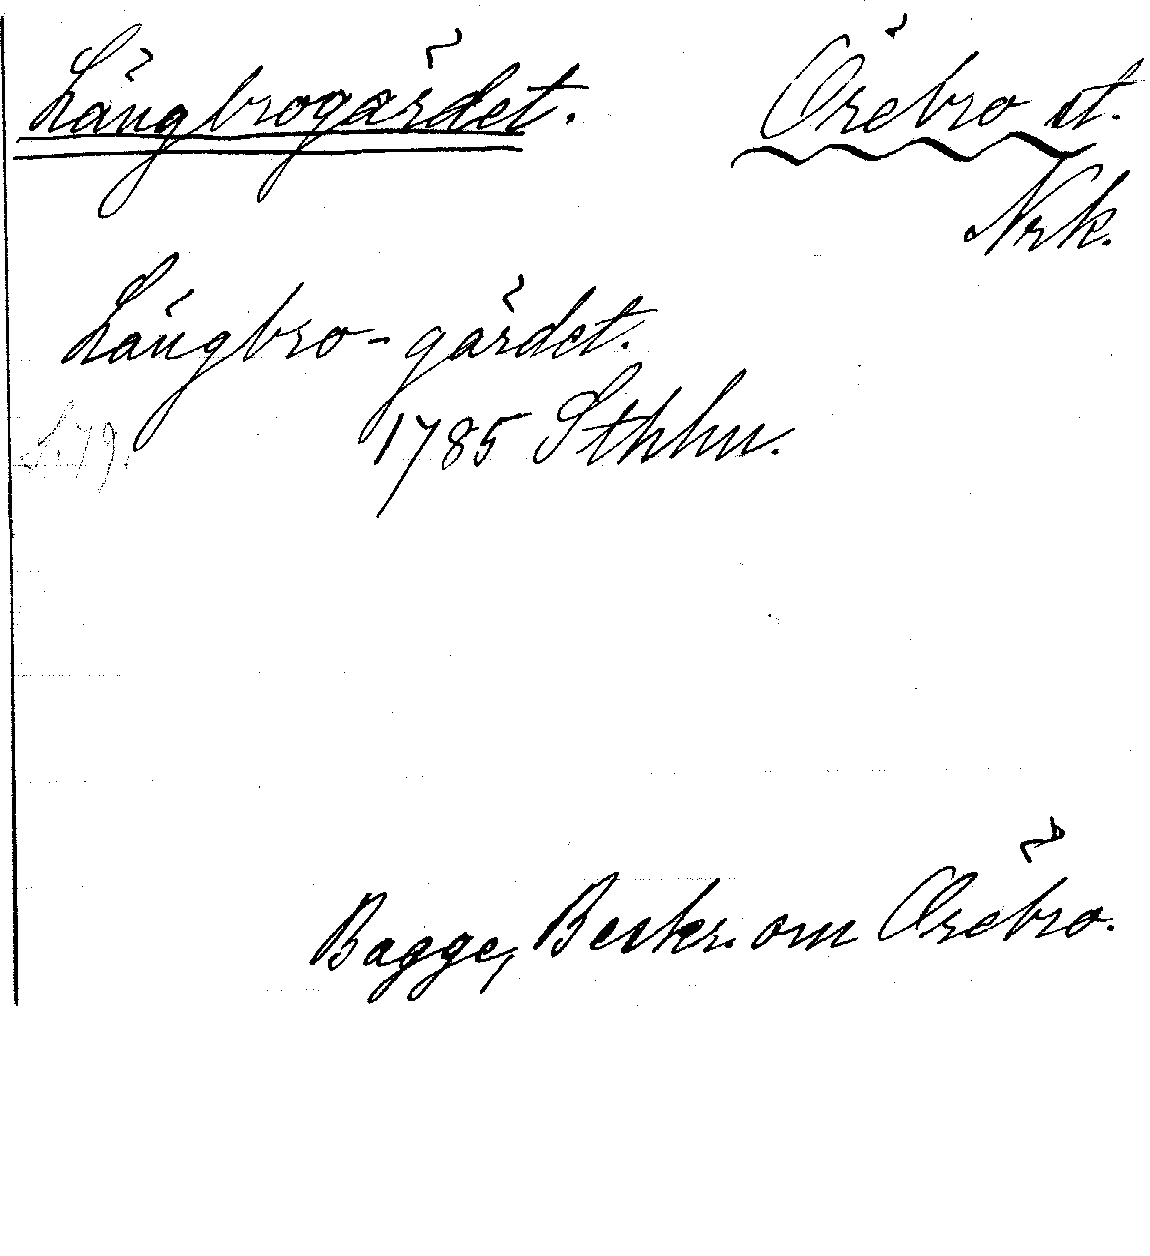 Långbrogärdet. Örebro st.
Nrk.
Långbro-gärdet.
S. 79. 1785 Sthlm.
Bagge, Beskr. om Örebro.